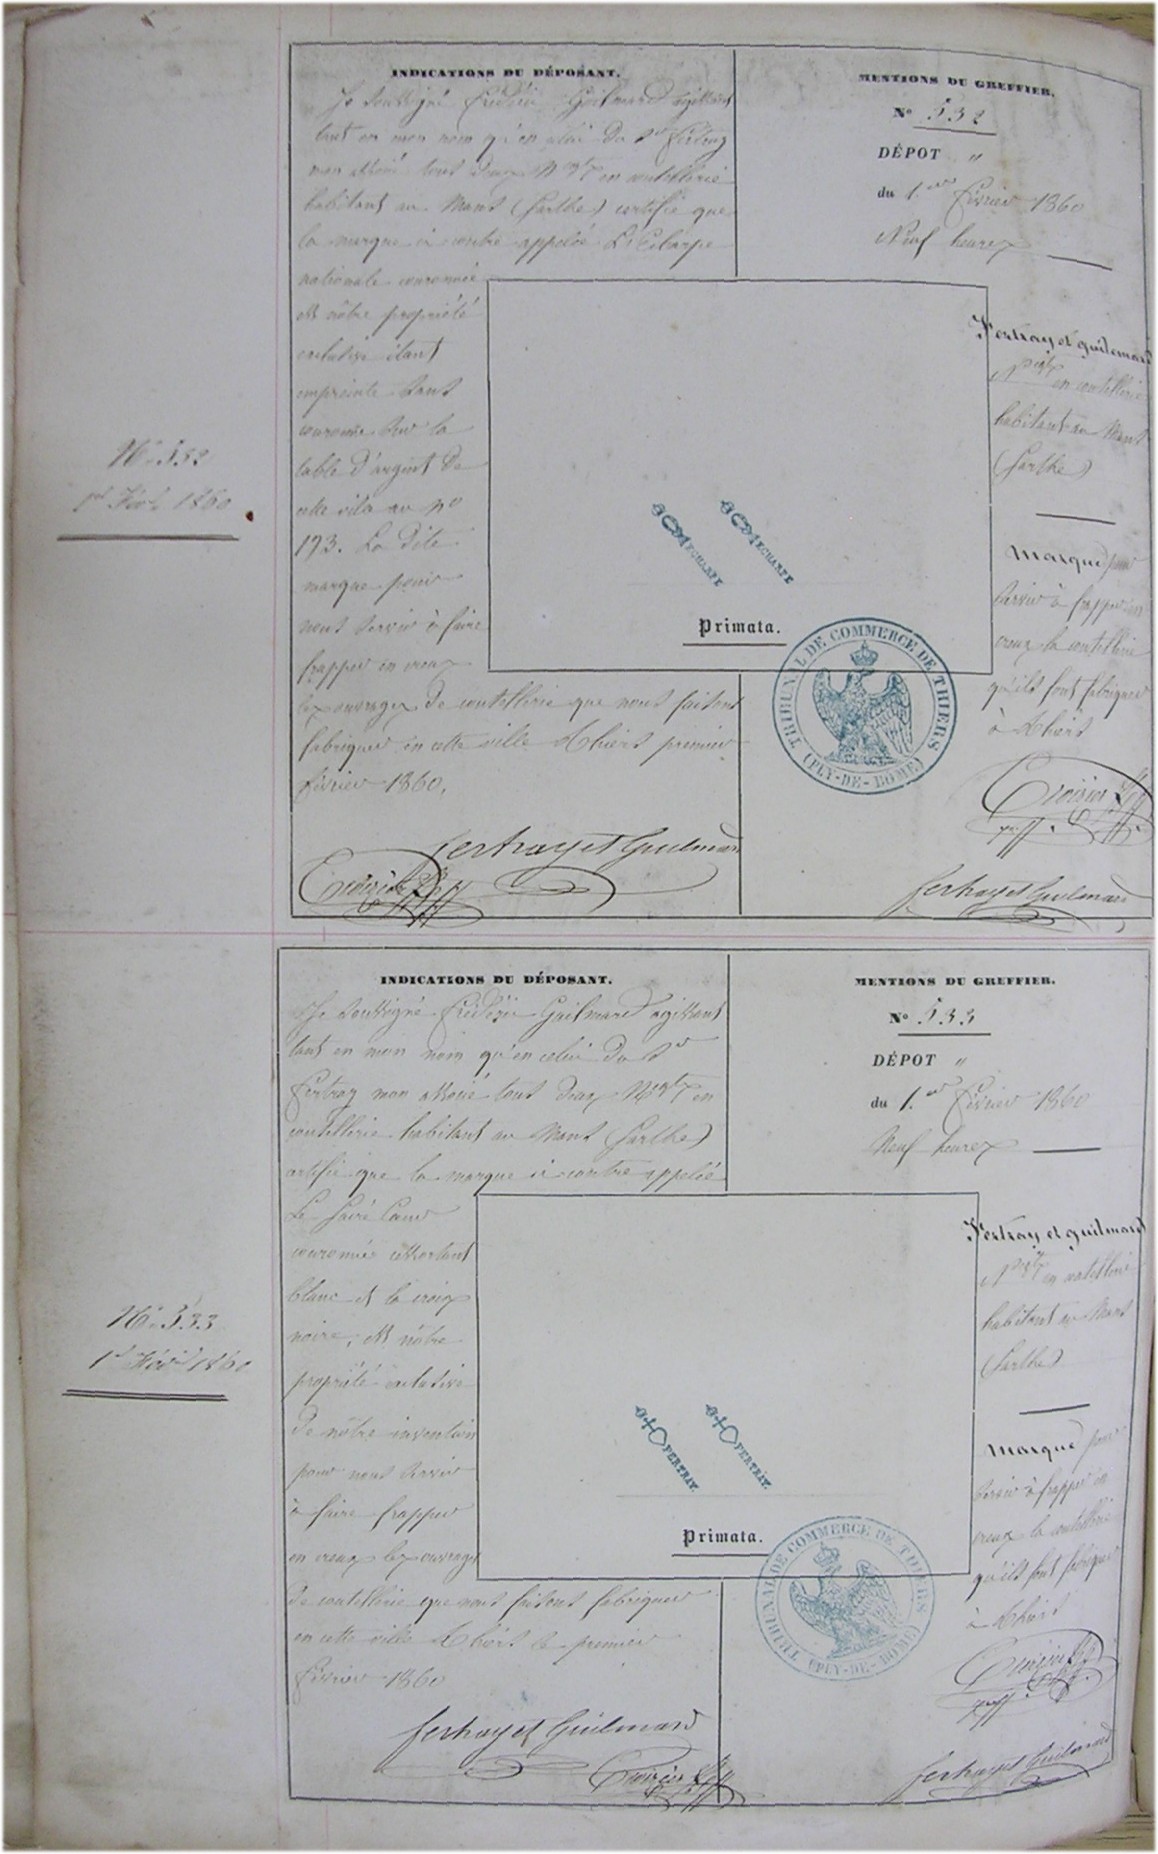 INDICATIONS DU DÉPOSANT.
Je soussigné Frédéric Guilmard agissant
tant en mon nom qu'en celui du Sr Fertray
mon associé tous deux Négts en coutellerie
habitant au Mans (Sarthe) certifie que
la marque ci contre appelée L'Echarpe
nationale couronnée
est nôtre propriété
exclusive étant
empreinte sans
couronne sur la
table d'argent de
cette ville au No
193. La dite
marque pour
nous servir à faire
frapper en creux
les ouvrages de coutellerie que nous faisons
fabriquer en cette ville Thiers premier
février 1860.
Fertray et Guilmard
Croizier
MENTIONS DU GREFFIER.
No 532
DÉPOT "
du 1.er Février 1860
Neuf heures
Fertray et Guilmard
Négts en coutellerie
habitant au Mans
(Sarthe)
Marque pour
servir à frapper en
creux la coutellerie
qu'ils font fabriquer
à Thiers
Croizier
greff.
Fertray et Guilmard
ECHARPE
ECHARPE
Primata.
TRIBUNAL DE COMMERCE DE THIERS
(PUY-DE-DÔME)
No 532
1er Févr. 1860
INDICATIONS DU DÉPOSANT.
Je soussigné Frédéric Guilmard agissant
tant en mon nom qu'en celui du Sr
Fertray mon associé tous deux Négts en
coutellerie habitant au Mans (Sarthe)
certifie que la marque ci contre appelée
Le Sacré Coeur
couronnée ressortant
blanc et la croix
noire, est nôtre
propriété exclusive
de nôtre invention
pour nous servir
à faire frapper
en creux les ouvrages
de coutellerie que nous faisons fabriquer
en cette ville Thiers le premier
février 1860
Fertray et Guilmard
Croizier
MENTIONS DU GREFFIER.
No 533
DÉPOT "
du 1.er Février 1860
Neuf heures
Fertray et Guilmard
Négts en coutellerie
habitant au Mans
(Sarthe)
Marque pour
servir à frapper en
creux la coutellerie
qu'ils font fabriquer
à Thiers
Croizier
greff.
Fertray et Guilmard
FERTRAY.
FERTRAY.
Primata.
TRIBUNAL DE COMMERCE DE THIERS
(PUY-DE-DÔME)
No 533
1er Févr 1860